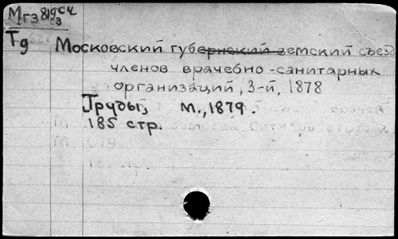 Мгз 819сч
3
Тд
Московский губернский земский съезд
членов врачебно-санитарных
организаций, 3-й, 1878
Труды, М., 1879.
185 стр.